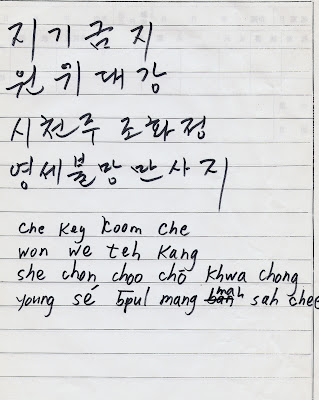 지기금지
원위대강
시천주 조화정
영세불망 만사지
che key koom che
won we teh kang
she chon choo chō khwa chong
young sé bpul mang mah sah chee